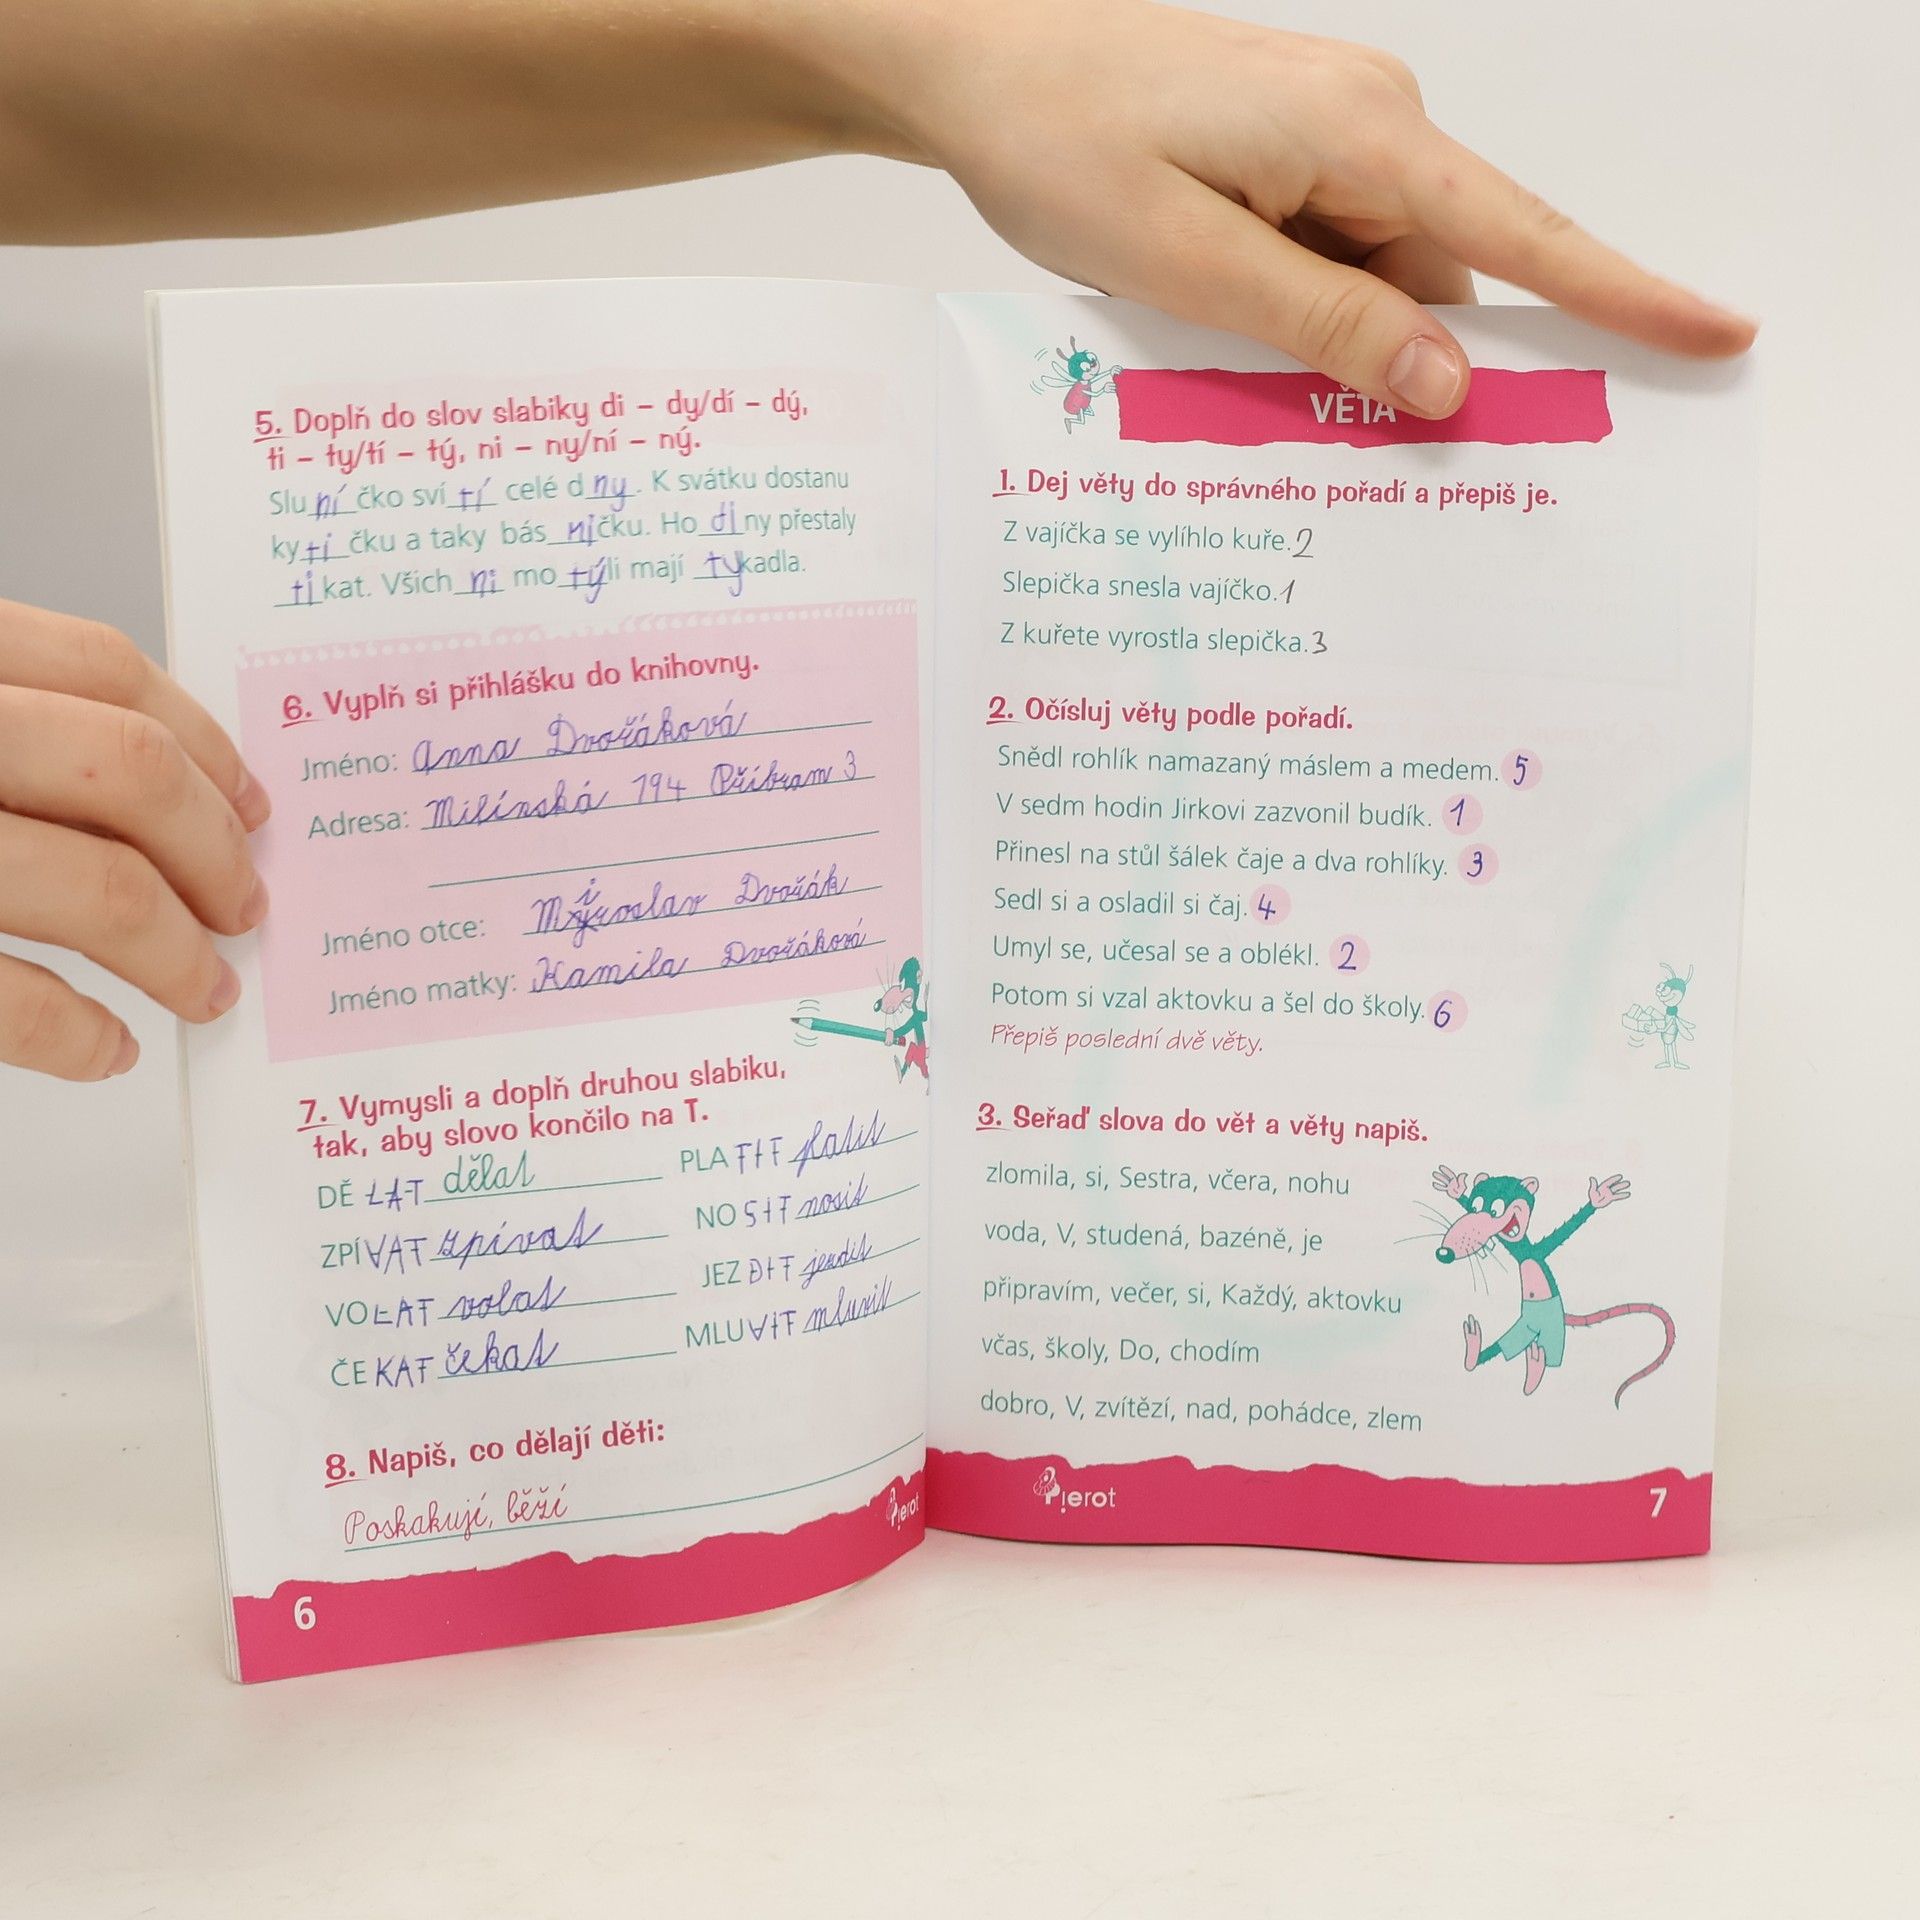 5. Doplň do slov slabiky di – dy/dí – dý,
ti – ty/tí – tý, ni – ny/ní – ný.
Slu ní čko sví tí celé d ny. K svátku dostanu
ky ti čku a taky bás ničku. Ho di ny přestaly
ti kat. Všich ni mo týli mají tykadla.
6. Vyplň si přihlášku do knihovny.
Jméno: Anna Dvořáková
Adresa: Milínská 194 Příbram 3
Jméno otce: Miroslav Dvořák
Jméno matky: Kamila Dvořáková
7. Vymysli a doplň druhou slabiku,
tak, aby slovo končilo na T.
DĚ LAT dělat
ZPÍVAT zpívat
VOLAT volat
ČE KAT čekat
PLATIT platit
NO SIT nosit
JEZ DIT jezdit
MLUVIT mluvit
8. Napiš, co dělají děti:
Poskakují, běží
Pierot
6
VĚTA
1. Dej věty do správného pořadí a přepiš je.
Z vajíčka se vylíhlo kuře. 2
Slepička snesla vajíčko. 1
Z kuřete vyrostla slepička. 3
2. Očísluj věty podle pořadí.
Snědl rohlík namazaný máslem a medem. 5
V sedm hodin Jirkovi zazvonil budík. 1
Přinesl na stůl šálek čaje a dva rohlíky. 3
Sedl si a osladil si čaj. 4
Umyl se, učesal se a oblékl. 2
Potom si vzal aktovku a šel do školy. 6
Přepiš poslední dvě věty.
3. Seřaď slova do vět a věty napiš.
zlomila, si, Sestra, včera, nohu
voda, V, studená, bazéně, je
připravím, večer, si, Každý, aktovku
včas, školy, Do, chodím
dobro, V, zvítězí, nad, pohádce, zlem
Pierot
7